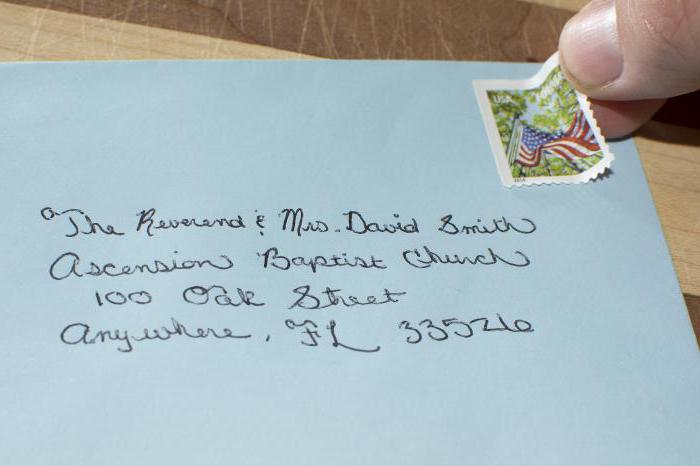 USA
The Reverend & Mrs. David Smith
Ascension Baptist Church
100 Oak Street
Anywhere, FL 33526